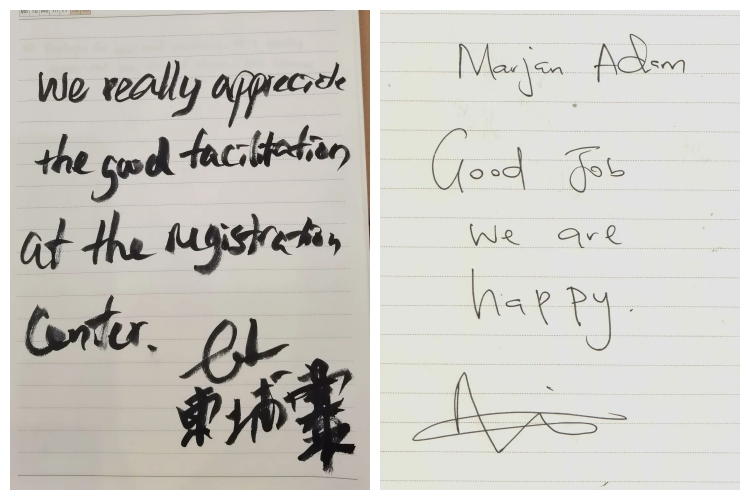 We really appreciate
the good facilitation
at the registration
Center.
東埔寨
Marjan Adam
Good Job
We are
happy.